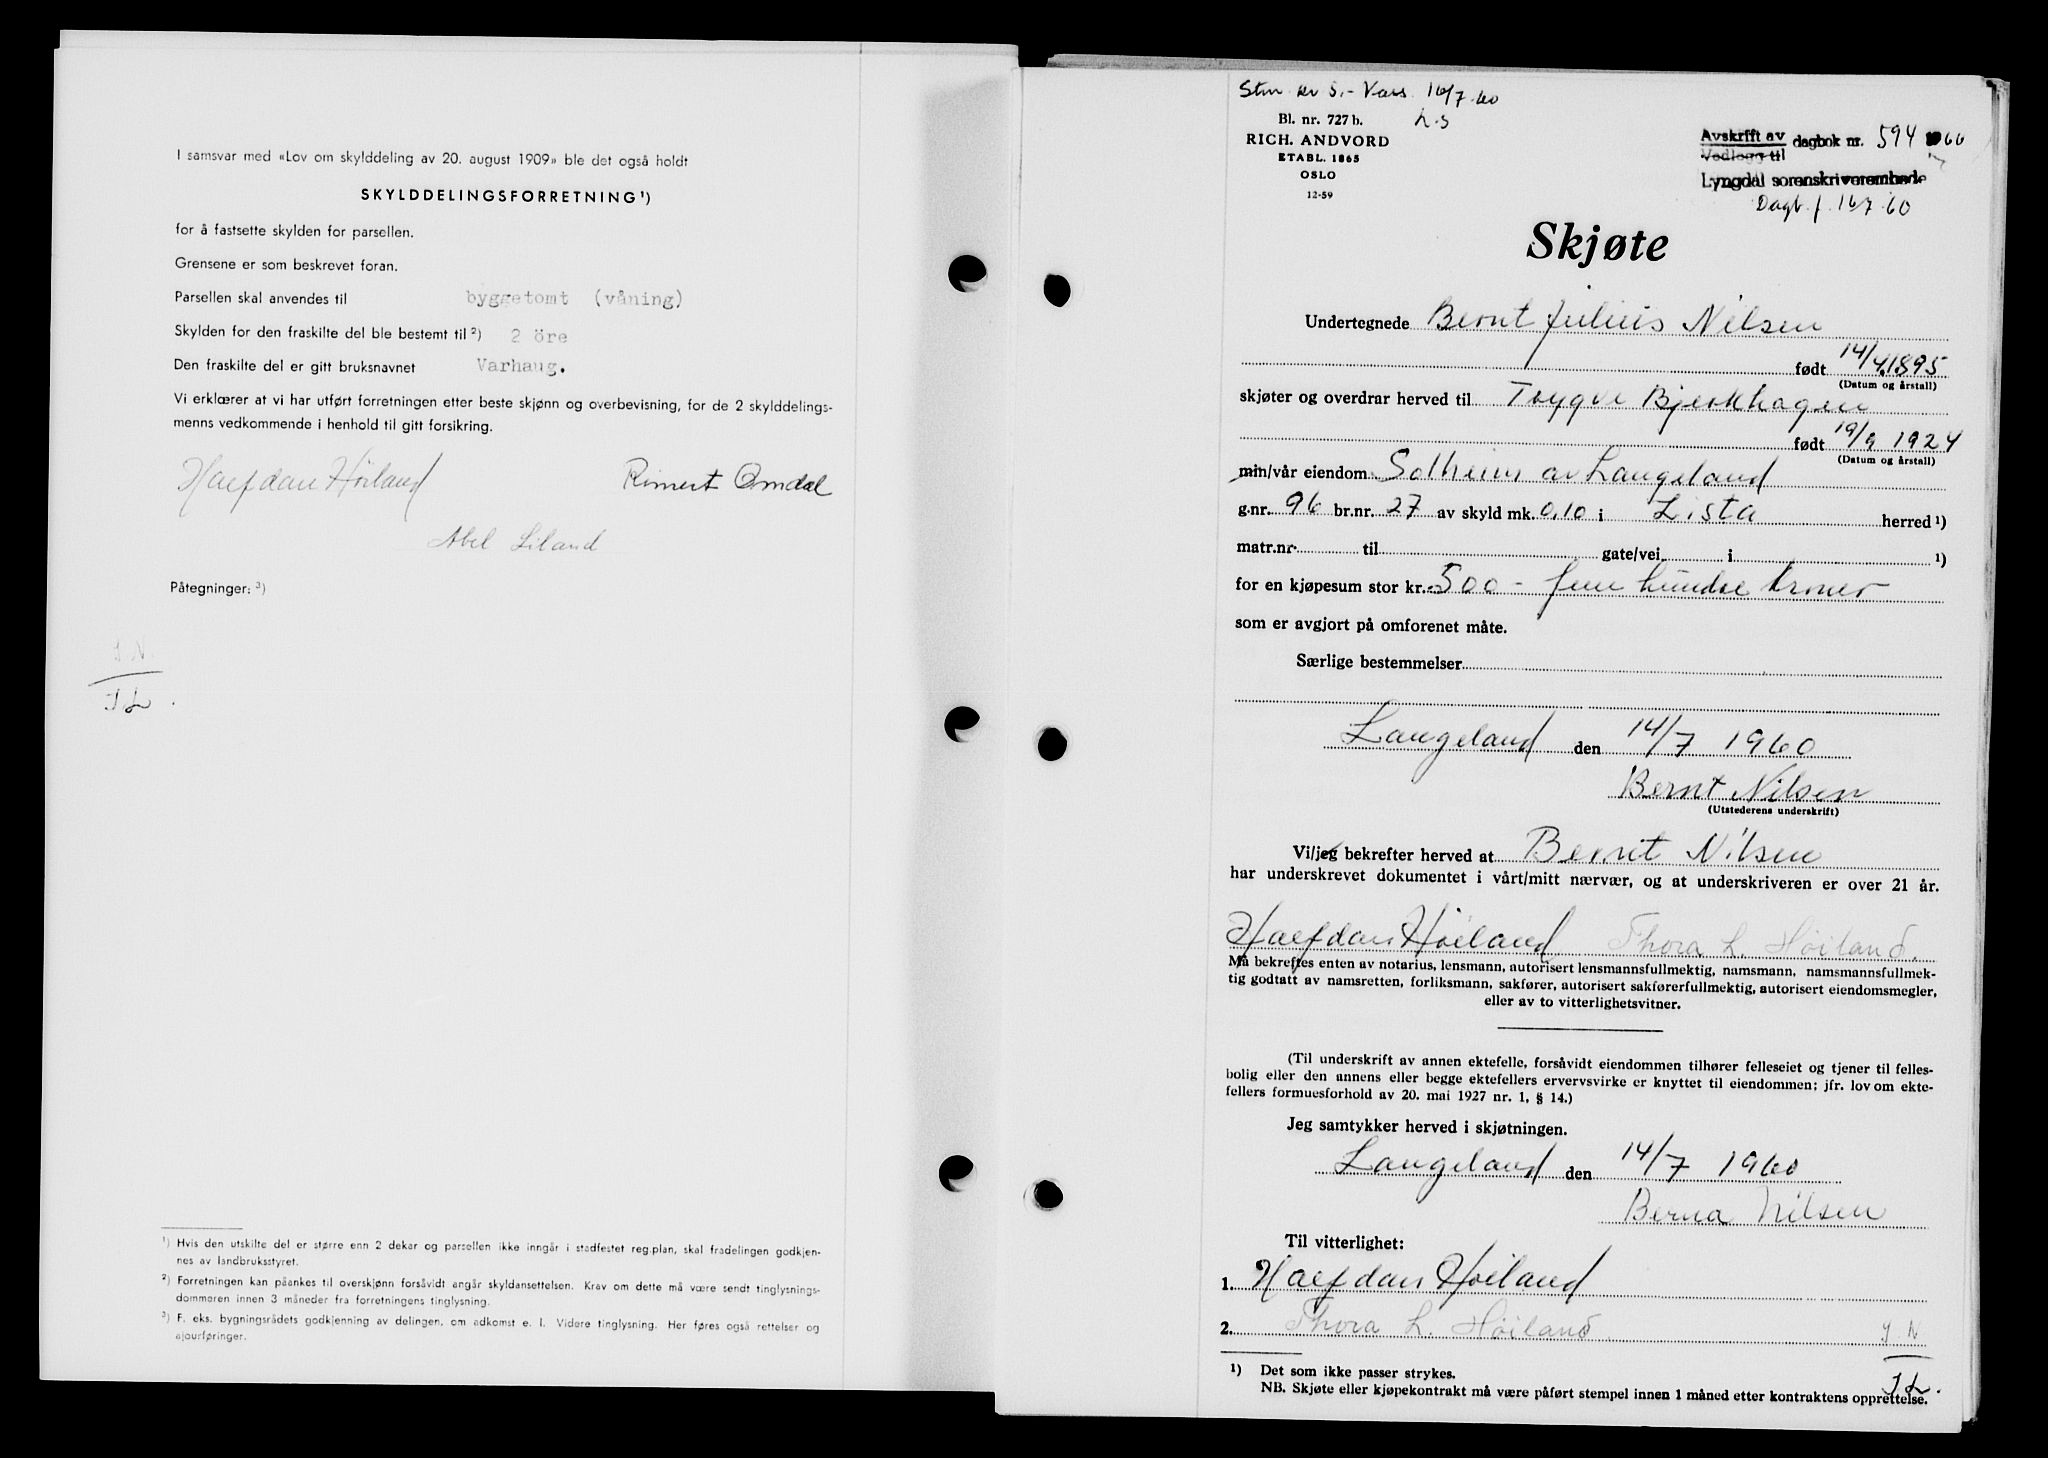 I samsvar med «Lov om skylddeling av 20. august 1909» ble det også holdt
SKYLDDELINGSFORRETNING¹)
for å fastsette skylden for parsellen.
Grensene er som beskrevet foran.
Parsellen skal anvendes til byggetomt (våning)
Skylden for den fraskilte del ble bestemt til ²) 2 öre
Den fraskilte del er gitt bruksnavnet Varhaug.
Vi erklærer at vi har utført forretningen etter beste skjønn og overbevisning, for de 2 skylddelings-
menns vedkommende i henhold til gitt forsikring.
Halfdan Høiland Rimert Omdal
Abel Liland
Påtegninger: ³)
J N.
J L.
¹) Hvis den utskilte del er større enn 2 dekar og parsellen ikke inngår i stadfestet reg.plan, skal fradelingen godkjen-
nes av landbruksstyret.
²) Forretningen kan påankes til overskjønn forsåvidt angår skyldansettelsen. Krav om dette må være sendt tinglysnings-
dommeren innen 3 måneder fra forretningens tinglysning.
³) F. eks. bygningsrådets godkjenning av delingen, om adkomst e. l. Videre tinglysning. Her føres også rettelser og
ajourføringer.
Stm. kr 5.- Vars. 16/7-60
L.S
Bl. nr. 727 b.
RICH. ANDVORD
ETABL. 1865
OSLO
12-59
Avskrift av
Vedlegg til dagbok nr. 594 60
Lyngdal sorenskriverembede
Dagb. f. 16/7 60
Skjøte
Undertegnede Bernt Julius Nilsen
født 14/4 1895
(Datum og årstall)
skjøter og overdrar herved til Trygve Bjerkhagen
født 19/9 1924
(Datum og årstall)
min/vår eiendom Solheim av Langeland
g.nr. 96 br.nr. 27 av skyld mk. 0,10 i Lista herred ¹)
matr.nr. til gate/vei i ¹)
for en kjøpesum stor kr. 500 - fem hundre kroner
som er avgjort på omforenet måte.
Særlige bestemmelser
Langeland den 14/7 1960
Bernt Nilsen
(Utstederens underskrift)
Vi/jeg bekrefter herved at Bernt Nilsen
har underskrevet dokumentet i vårt/mitt nærvær, og at underskriveren er over 21 år.
Halfdan Høiland Thora L. Høiland.
Må bekreftes enten av notarius, lensmann, autorisert lensmannsfullmektig, namsmann, namsmannsfullmek-
tig godtatt av namsretten, forliksmann, sakfører, autorisert sakførerfullmektig, autorisert eiendomsmegler,
eller av to vitterlighetsvitner.
(Til underskrift av annen ektefelle, forsåvidt eiendommen tilhører felleseiet og tjener til felles-
bolig eller den annens eller begge ektefellers ervervsvirke er knyttet til eiendommen; jfr. lov om ekte-
fellers formuesforhold av 20. mai 1927 nr. 1, § 14.)
Jeg samtykker herved i skjøtningen.
Langeland den 14/7 1960
Berna Nilsen
Til vitterlighet:
1. Halfdan Høiland
2. Thora L. Høiland
J N
J L.
¹) Det som ikke passer strykes.
NB. Skjøte eller kjøpekontrakt må være påført stempel innen 1 måned etter kontraktens opprettelse.